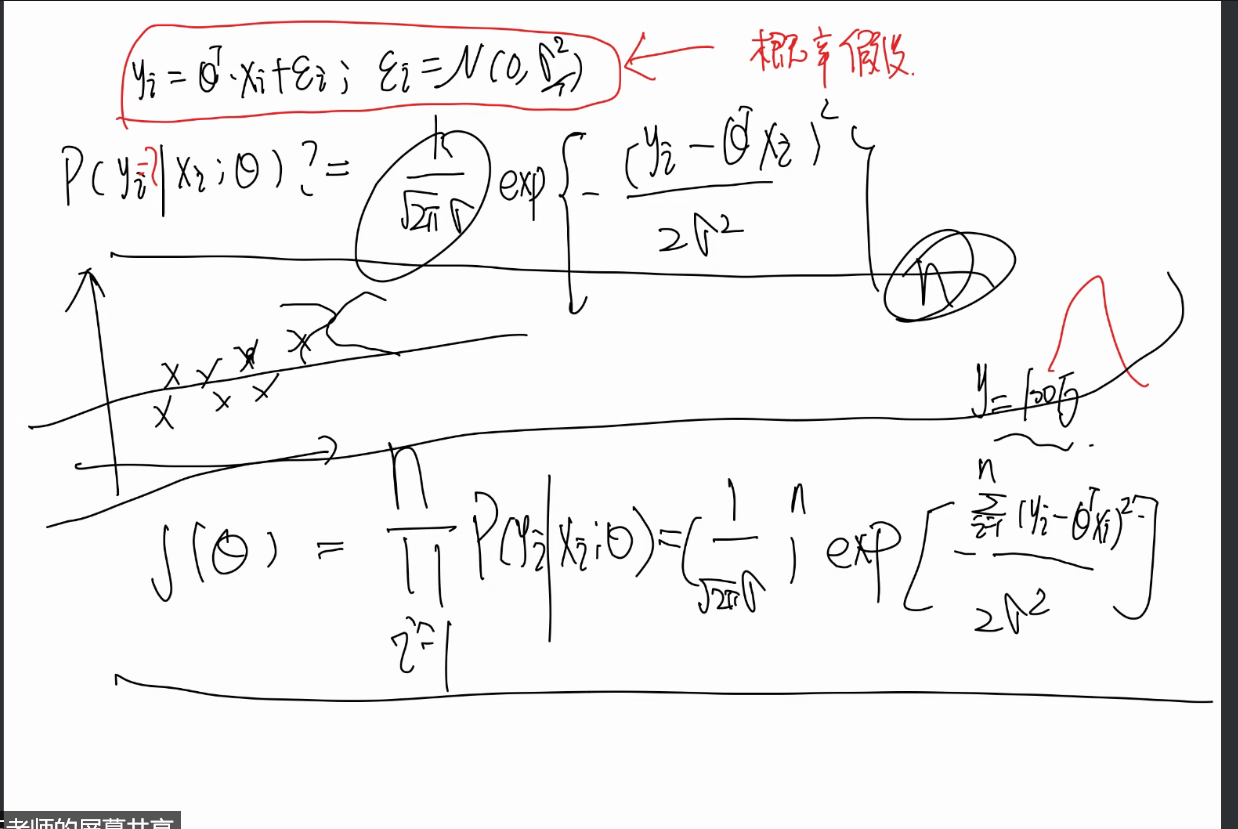 yᵢ = θᵀ·xᵢ+εᵢ ; εᵢ = N(0, σ²) ← 概率假设.
P(yᵢ=?|xᵢ;θ)? = 1/(√2π σ) exp{ - (yᵢ - θᵀxᵢ)² / 2σ² }
n
y = 100万
J(θ) = ∏ⁿᵢ₌₁ P(yᵢ|xᵢ;θ) = (1/(√2π σ))ⁿ exp[ - ∑ⁿᵢ₌₁ (yᵢ - θᵀxᵢ)² / 2σ² ]
老师的屏幕共享